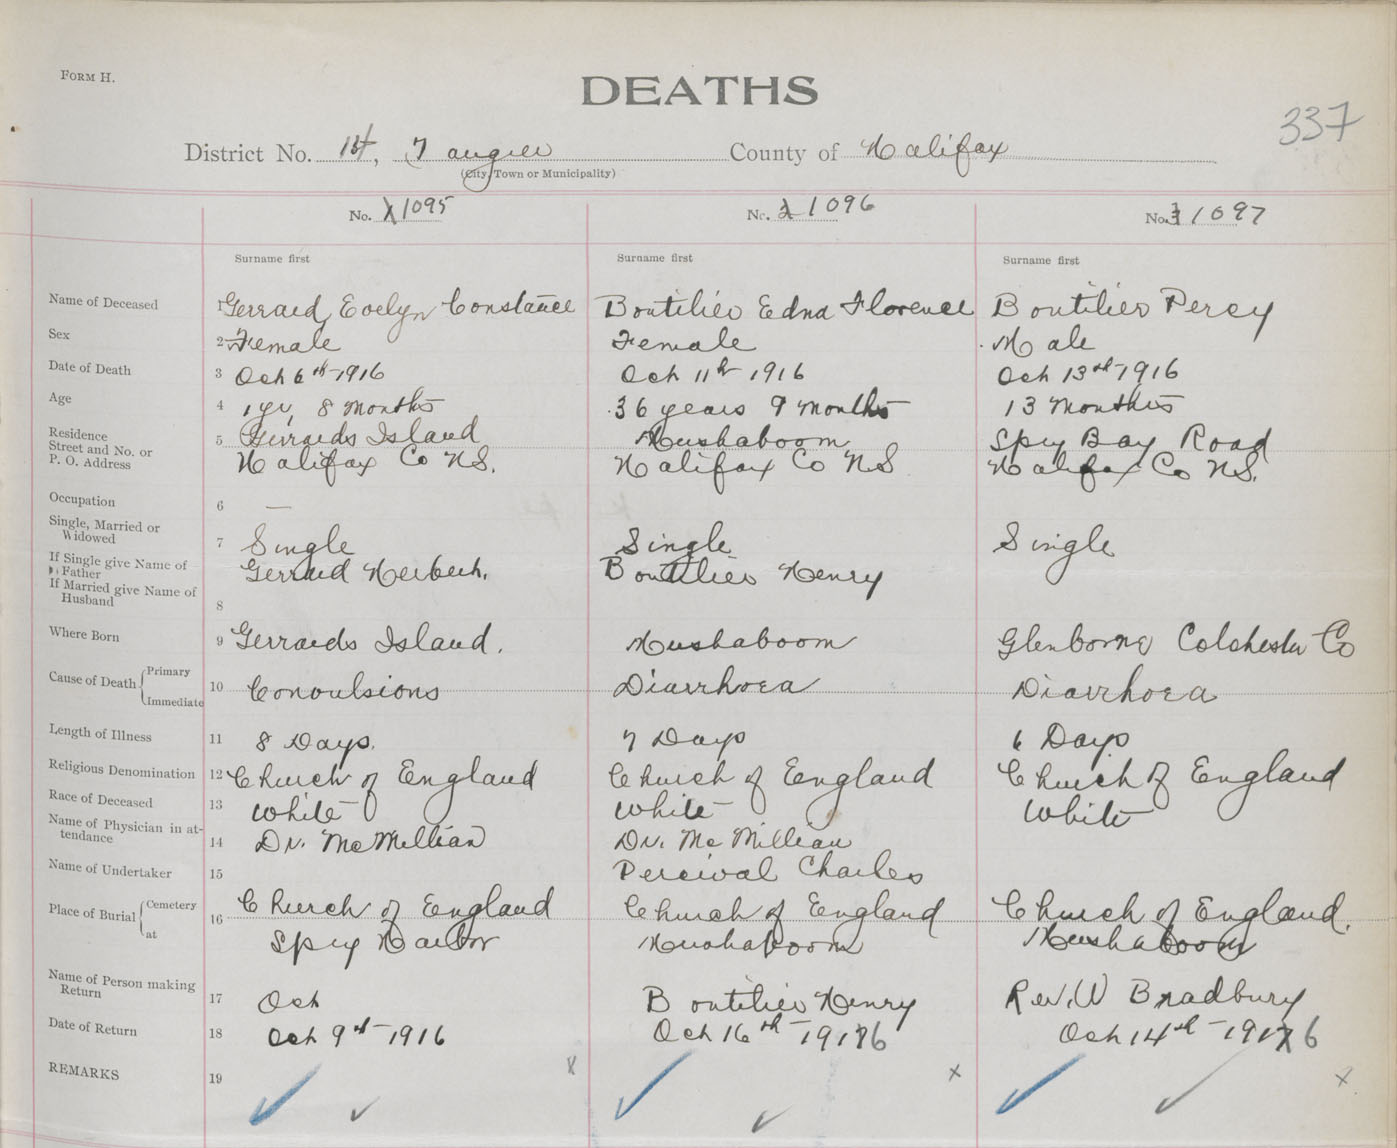 FORM H.
DEATHS
337
District No. 14, Tangier County of Halifax
(City, Town or Municipality)
No. 1 1095 No. 2 1096 No. 3 1097
Surname first Surname first Surname first
Name of Deceased 1 Gerrard, Evelyn Constance Boutilier Edna Florence Boutilier Percy
Sex 2 Female Female Male
Date of Death 3 Oct 6th 1916 Oct 11th 1916 Oct 13th 1916
Age 4 1 yr, 8 months 36 years 9 months 13 months
Residence
Street and No. or
P. O. Address
5 Gerrards Island Mushaboom Spry Bay Road
Halifax Co N.S. Halifax Co N.S Halifax Co N.S.
Occupation 6 —
Single, Married or
Widowed
7 Single Single Single
If Single give Name of
Father
Gerrard Herbert. Boutilier Henry
If Married give Name of
Husband
8
Where Born 9 Gerrards Island. Mushaboom Glenborne Colchester Co
Cause of Death { Primary
Immediate
10 Convulsions Diarrhoea Diarrhoea
Length of Illness 11 8 Days. 7 Days 6 Days
Religious Denomination 12 Church of England Church of England Church of England
Race of Deceased 13 White White White
Name of Physician in at-
tendance
14 Dr. McMillian Dr. McMillian
Name of Undertaker 15 Percival Charles
Place of Burial { Cemetery
at
16 Church of England Church of England Church of England.
Spry Harbor Mushaboom Mushaboom
Name of Person making
Return
17 Oct Boutilier Henry Rev. W Bradbury
Date of Return 18 Oct 9th 1916 Oct 16th 1916 Oct 14th 1917 6
REMARKS 19 x x x